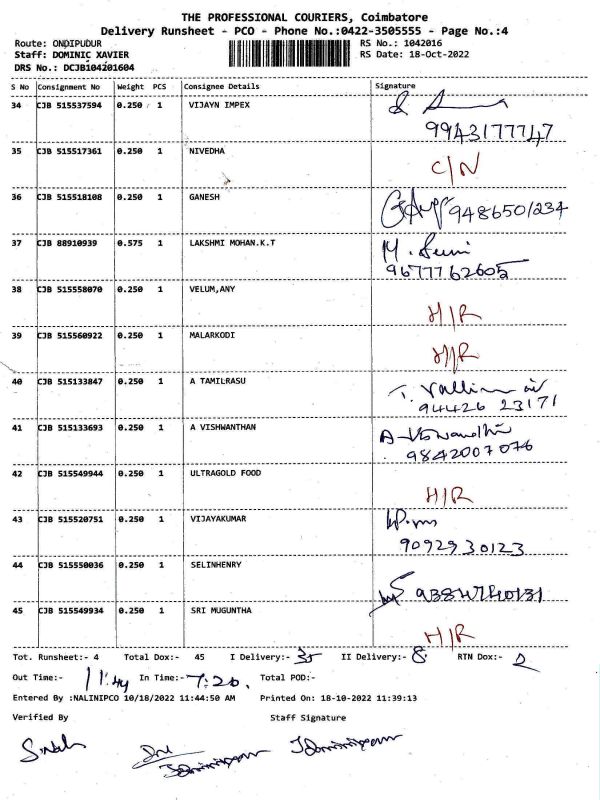 THE PROFESSIONAL COURIERS, Coimbatore
Delivery Runsheet - PCO - Phone No.:0422-3505555 - Page No.:4
Route: ONDIPUDUR RS No.: 1042016
Staff: DOMINIC XAVIER RS Date: 18-Oct-2022
DRS No.: DCJB104201604
S No Consignment No Weight PCS Consignee Details Signature
34 CJB 515537594 0.250 1 VIJAYN IMPEX
9943177747
35 CJB 515517361 0.250 1 NIVEDHA
C/N
36 CJB 515518108 0.250 1 GANESH
9486501234
37 CJB 88910939 0.575 1 LAKSHMI MOHAN.K.T
9677762605
38 CJB 515558070 0.250 1 VELUM,ANY
H/R
39 CJB 515560922 0.250 1 MALARKODI
H/R
40 CJB 515133847 0.250 1 A TAMILRASU
94426 23171
41 CJB 515133693 0.250 1 A VISHWANTHAN
9842007076
42 CJB 515549944 0.250 1 ULTRAGOLD FOOD
H/R
43 CJB 515520751 0.250 1 VIJAYAKUMAR
9092930123
44 CJB 515550036 0.250 1 SELINHENRY
45 CJB 515549934 0.250 1 SRI MUGUNTHA
H/R
Tot. Runsheet:- 4 Total Dox:- 45 I Delivery:- 35 II Delivery:- 8 RTN Dox:- 2
Out Time:- 11:44 In Time:- 7:20 Total POD:-
Entered By :NALINIPCO 10/18/2022 11:44:50 AM Printed On: 18-10-2022 11:39:13
Verified By Staff Signature